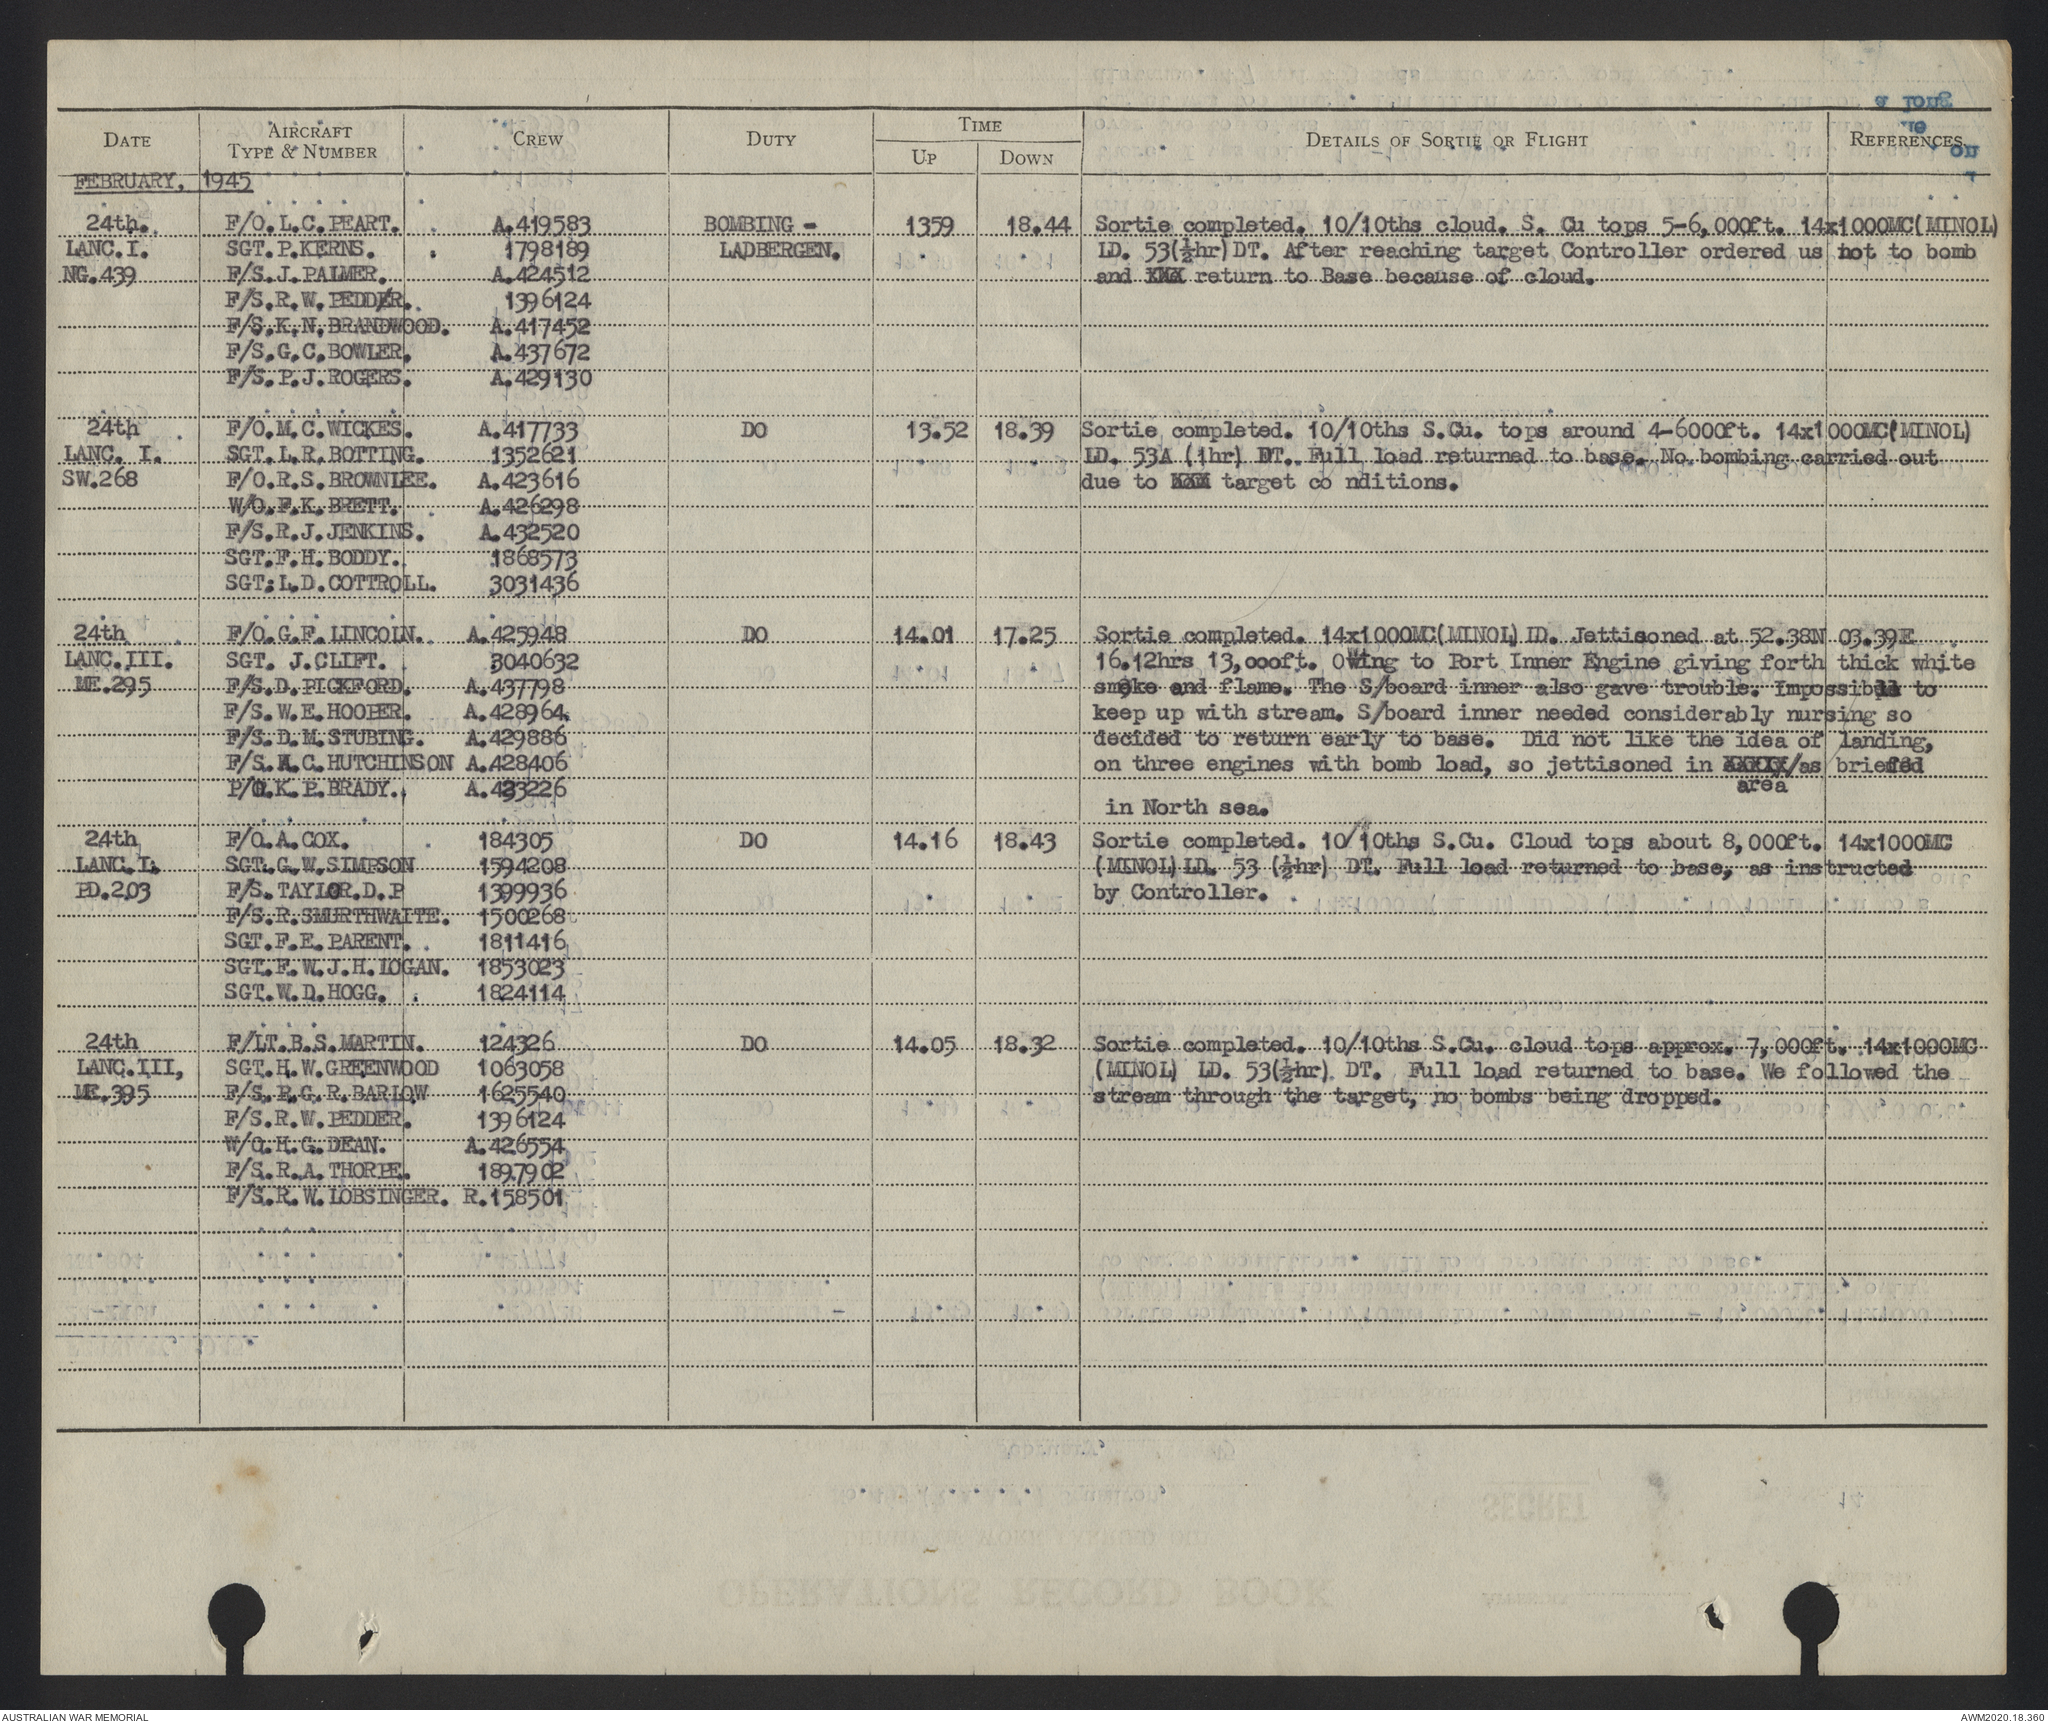 DATE AIRCRAFT TYPE & NUMBER CREW DUTY TIME UP DOWN DETAILS OF SORTIE OR FLIGHT REFERENCES
FEBRUARY, 1945
24th. F/O.L.C.PEART. A.419583 BOMBING - 1359 18.44 Sortie completed. 10/10ths cloud. S. Cu tops 5-6,000ft. 14x1000MC(MINOL)
LANC.I. SGT.P.KERNS. 1798189 LADBERGEN. LD. 53(½hr)DT. After reaching target Controller ordered us not to bomb
NG.439 F/S.J.PALMER. A.424512 and XXX return to Base because of cloud.
F/S.R.W.PEDDER. 1396124
F/S.K.N.BRANDWOOD. A.417452
F/S.G.C.BOWLER. A.437672
F/S.P.J.ROGERS. A.429130
24th F/O.M.C.WICKES. A.417733 DO 13.52 18.39 Sortie completed. 10/10ths S.Cu. tops around 4-6000ft. 14x1000MC(MINOL)
LANC. I. SGT.L.R.BOTTING. 1352621 LD. 53A (1hr) DT. Full load returned to base. No bombing carried out
SW.268 F/O.R.S.BROWNLEE. A.423616 due to XXX target co nditions.
W/O.F.K.BRETT. A.426298
F/S.R.J.JENKINS. A.432520
SGT.F.H.BODDY. 1868573
SGT:L.D.COTTROLL. 3031436
24th F/O.G.F.LINCOLN. A.425948 DO 14.01 17.25 Sortie completed. 14x1000MC(MINOL)LD. Jettisoned at 52.38N 03.39E
LANC.III. SGT. J.CLIFT. 3040632 16.12hrs 13,000ft. Owing to Port Inner Engine giving forth thick white
ME.295 F/S.D.PICKFORD. A.437798 smoke and flame. The S/board inner also gave trouble. Impossible to
F/S.W.E.HOOPER. A.428964. keep up with stream. S/board inner needed considerably nursing so
F/S.D.M.STUBING. A.429886 decided to return early to base. Did not like the idea of landing,
F/S.A.C.HUTCHINSON A.428406 on three engines with bomb load, so jettisoned in XXXXX/as briefed
P/O.K.P.BRADY. A.423226 area
in North sea.
24th F/O.A.COX. 184305 DO 14.16 18.43 Sortie completed. 10/10ths S.Cu. Cloud tops about 8,000ft. 14x1000MC
LANC.I. SGT.G.W.SIMPSON 1594208 (MINOL)LD. 53 (½hr) DT. Full load returned to base, as instructed
PD.203 F/S.TAYLOR.D.P 1399936 by Controller.
F/S.R.SMURTHWAITE. 1500268
SGT.F.E.PARENT. 1811416
SGT.F.W.J.H.LOGAN. 1853023
SGT.W.D.HOGG. 1824114
24th F/LT.B.S.MARTIN. 124326 DO 14.05 18.32 Sortie completed. 10/10ths S.Cu. cloud tops approx. 7,000ft. 14x1000MC
LANC.III, SGT.H.W.GREENWOOD 1063058 (MINOL) LD. 53(½hr) DT. Full load returned to base. We followed the
ME.395 F/S.P.G.R.BARLOW 1625540 stream through the target, no bombs being dropped.
F/S.R.W.PEDDER. 1396124
W/O.H.G.DEAN. A.426554
F/S.R.A.THORPE. 1897902
F/S.R.W.LOBSINGER. R.158501
AUSTRALIAN WAR MEMORIAL AWM2020.18.360